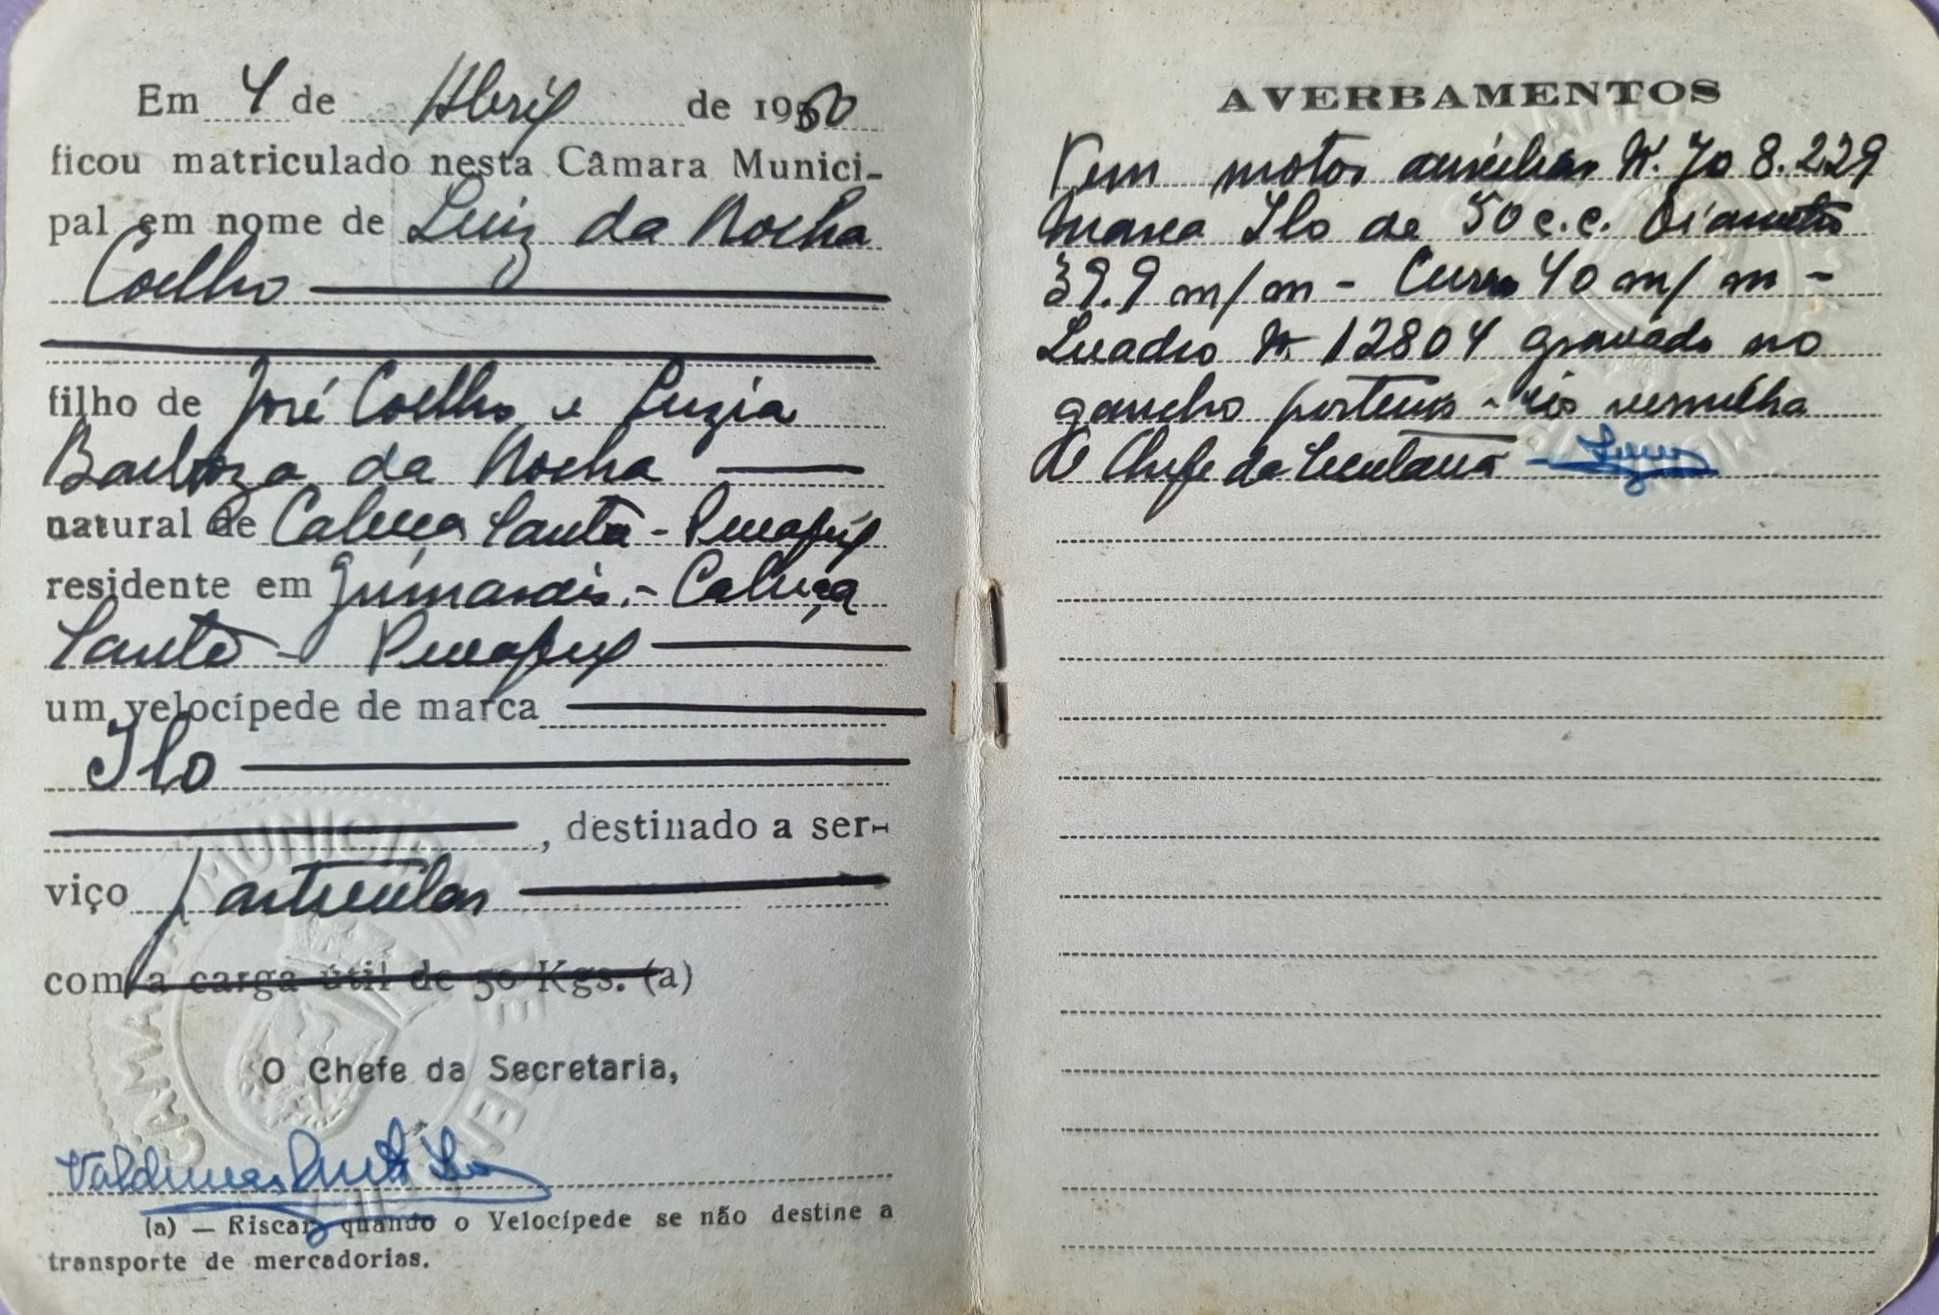 Em 4 de Abril de 1960
ficou matriculado nesta Câmara Munici-
pal em nome de Luiz da Rocha
Coelho
filho de José Coelho e Luzia
Barboza da Rocha
natural de Cabeça Santa - Penafiel
residente em Guimarãis. - Cabeça
Santa - Penafiel
um velocípede de marca
Ilo
, destinado a ser-
viço particular
com a carga útil de 50 Kgs. (a)
O Chefe da Secretaria,
(a) — Riscar quando o Velocípede se não destine a
transporte de mercadorias.
AVERBAMENTOS
Tem motor auxiliar N. 708.229
marca Ilo de 50 c.c. Diametro
39.9 m/m - Curso 40 m/m -
Quadro N. 12804 gravado no
gancho
vermelha
O Chefe da Secretaria
CAMARA MUNICIPAL